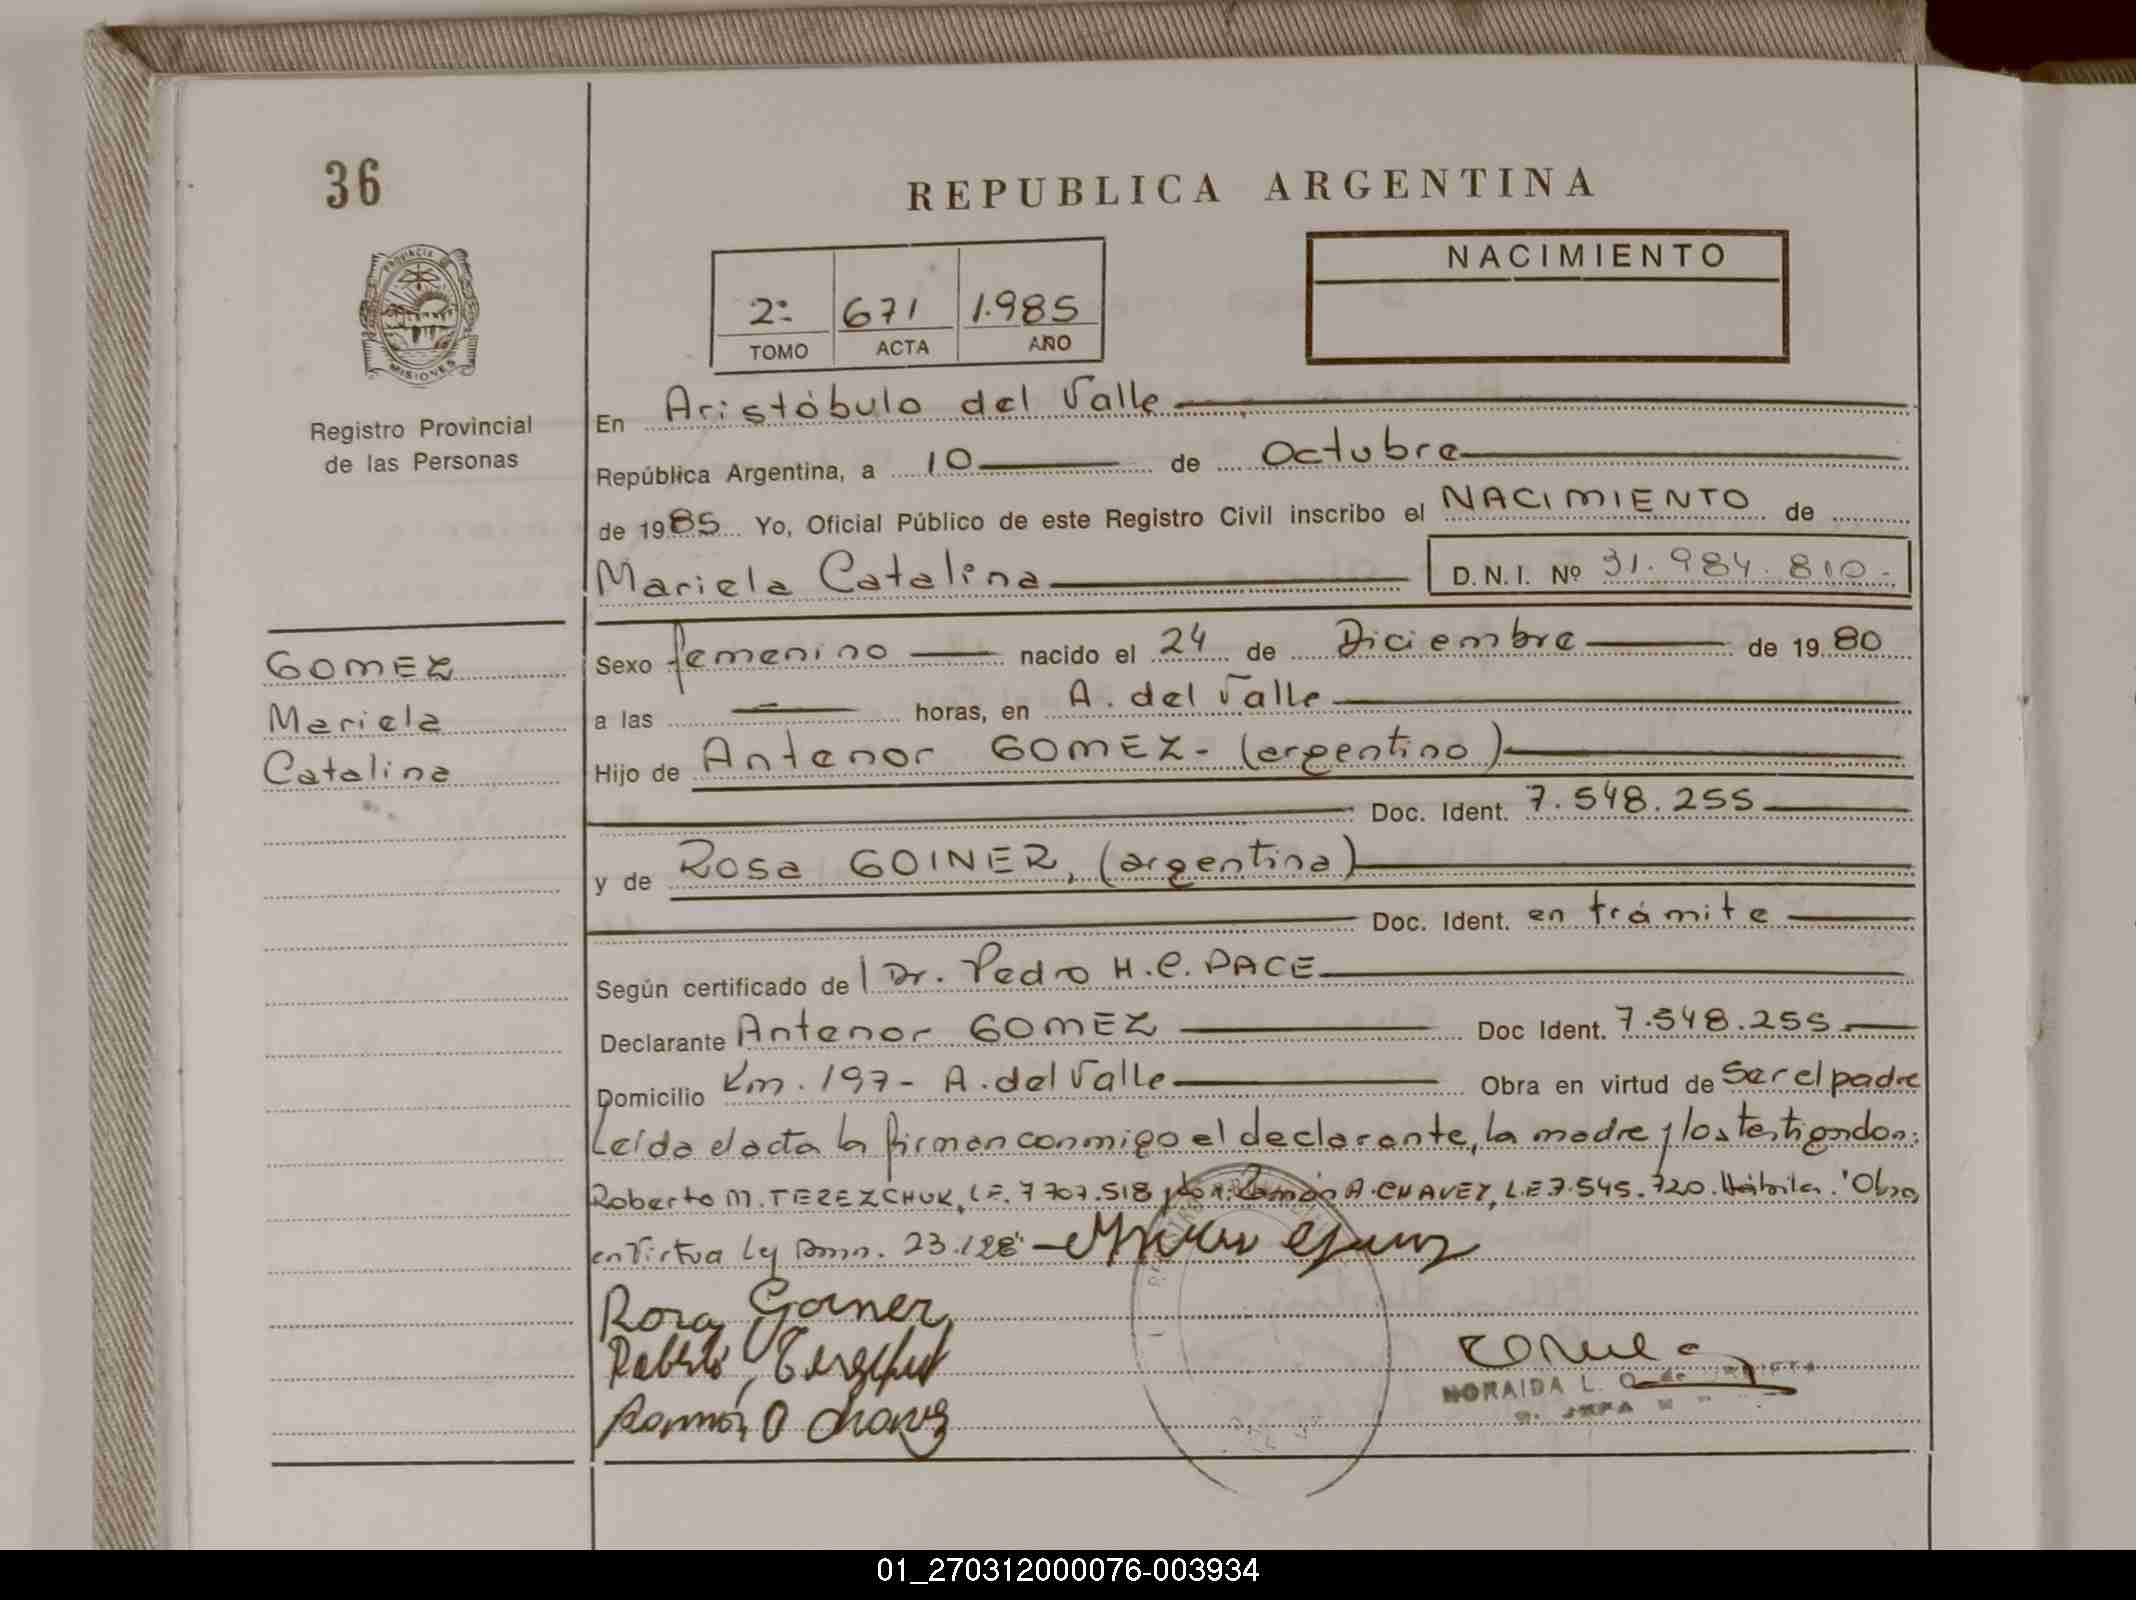 36
REPUBLICA ARGENTINA
PROVINCIA DE
MISIONES
Registro Provincial
de las Personas
NACIMIENTO
2º 671 1.985
TOMO ACTA AÑO
En Aristóbulo del Valle
República Argentina, a 10 de Octubre
de 1985 Yo, Oficial Público de este Registro Civil inscribo el NACIMIENTO de
Mariela Catalina D.N.I. Nº 31.984.810.-
GOMEZ
Mariela
Catalina
Sexo femenino nacido el 24 de Diciembre de 1980
a las — horas, en A. del Valle
Hijo de Antenor GOMEZ - (argentino)
Doc. Ident. 7.548.255
y de Rosa GOINER, (argentina)
Doc. Ident. en trámite
Según certificado de Dr. Pedro H.C. PACE
Declarante Antenor GOMEZ Doc Ident. 7.548.255
Domicilio Km. 197 - A. del Valle Obra en virtud de Ser el padre
Leída el acta la firman conmigo el declarante, la madre y los testigos don:
Roberto M. TEREZCHUK, L.E. 7 707.518 y don Ramón A. CHAVEZ, L.E 7.545.720. Hábiles. "Obra
en Virtud Ley 23.128"
Rosa Goiner
Roberto
Ramón Chavez
NORAIDA L.
01_270312000076-003934